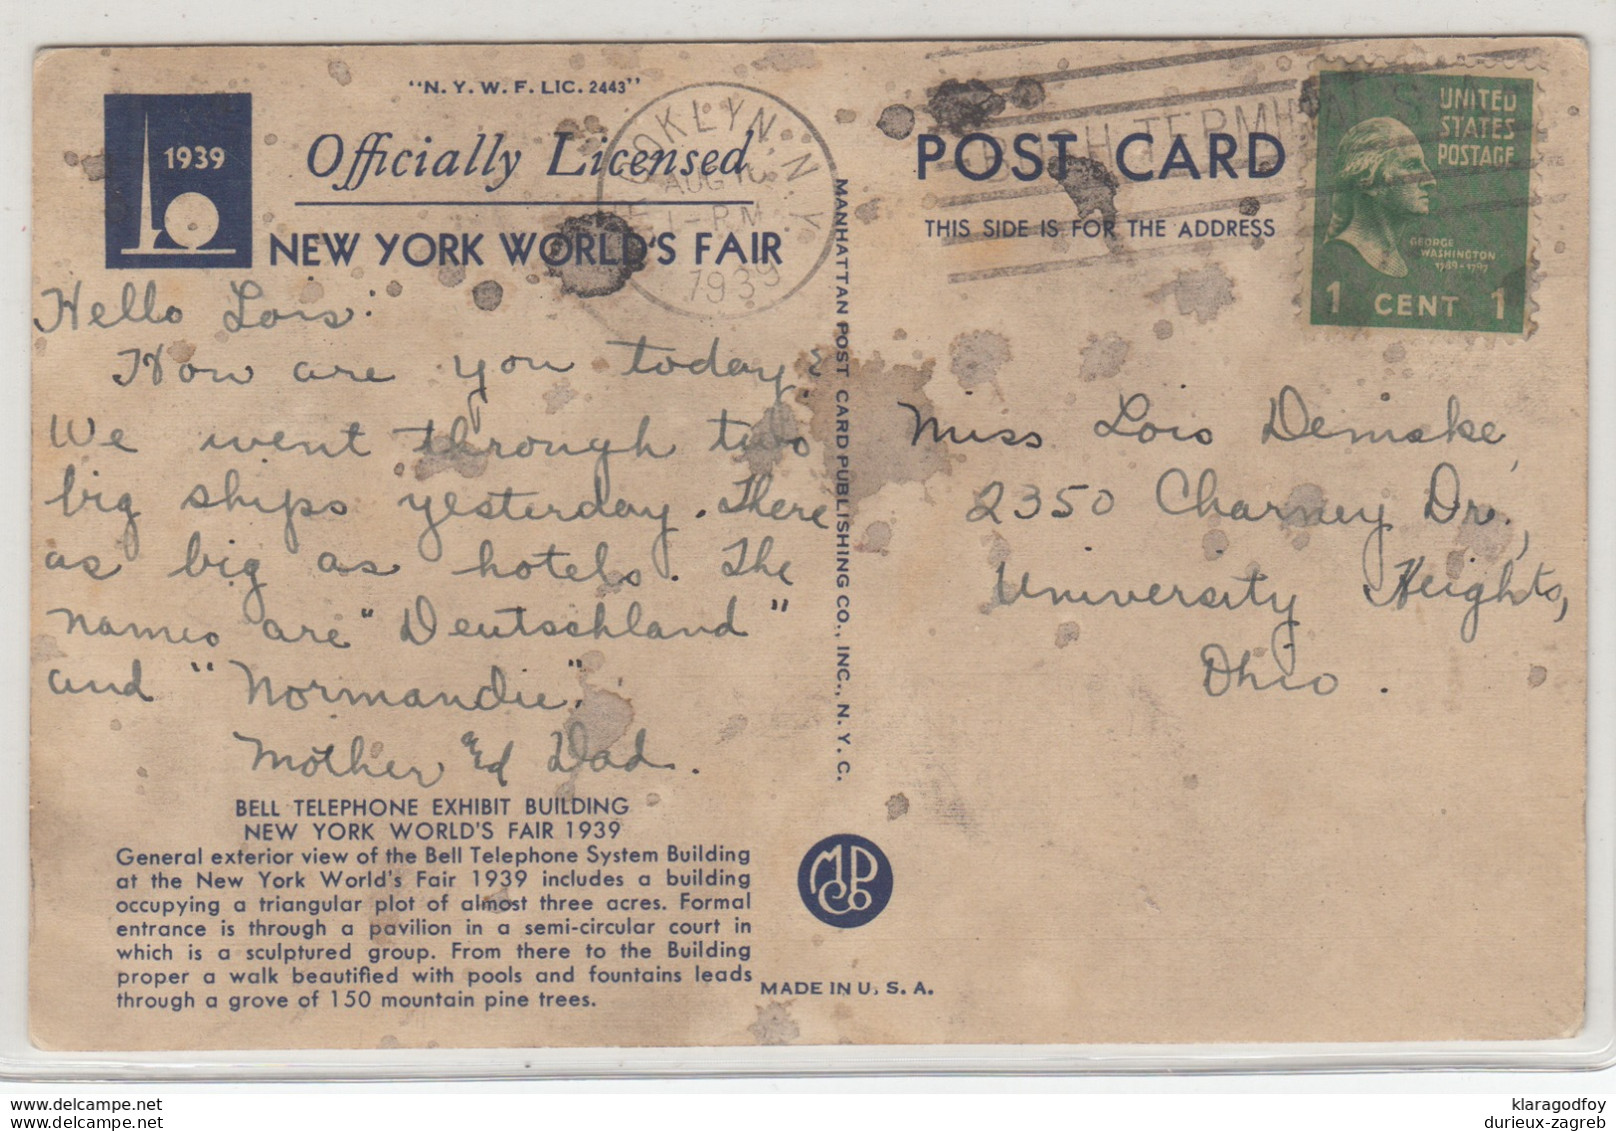 "N. Y. W. F. LIC. 2443"
1939
Officially Licensed
NEW YORK WORLD'S FAIR
Hello Lois:
How are you today?
We went through two
big ships yesterday. There
as big as hotels. The
names are "Deutschland"
and "Normandie".
Mother & Dad.
BELL TELEPHONE EXHIBIT BUILDING
NEW YORK WORLD'S FAIR 1939
General exterior view of the Bell Telephone System Building
at the New York World's Fair 1939 includes a building
occupying a triangular plot of almost three acres. Formal
entrance is through a pavilion in a semi-circular court in
which is a sculptured group. From there to the Building
proper a walk beautified with pools and fountains leads
through a grove of 150 mountain pine trees.
BROOKLYN, N. Y.
AUG
1-PM
1939
MANHATTAN POST CARD PUBLISHING CO., INC., N. Y. C.
MPCo
MADE IN U. S. A.
POST CARD
THIS SIDE IS FOR THE ADDRESS
BUSH TERMINAL STA.
UNITED
STATES
POSTAGE
GEORGE
WASHINGTON
1789-1797
1 CENT 1
Miss Lois Demske,
2350 Charney Dr.,
University Heights,
Ohio.
klaragodfoy
delcampe.com
durieux-zagreb
delcampe.net